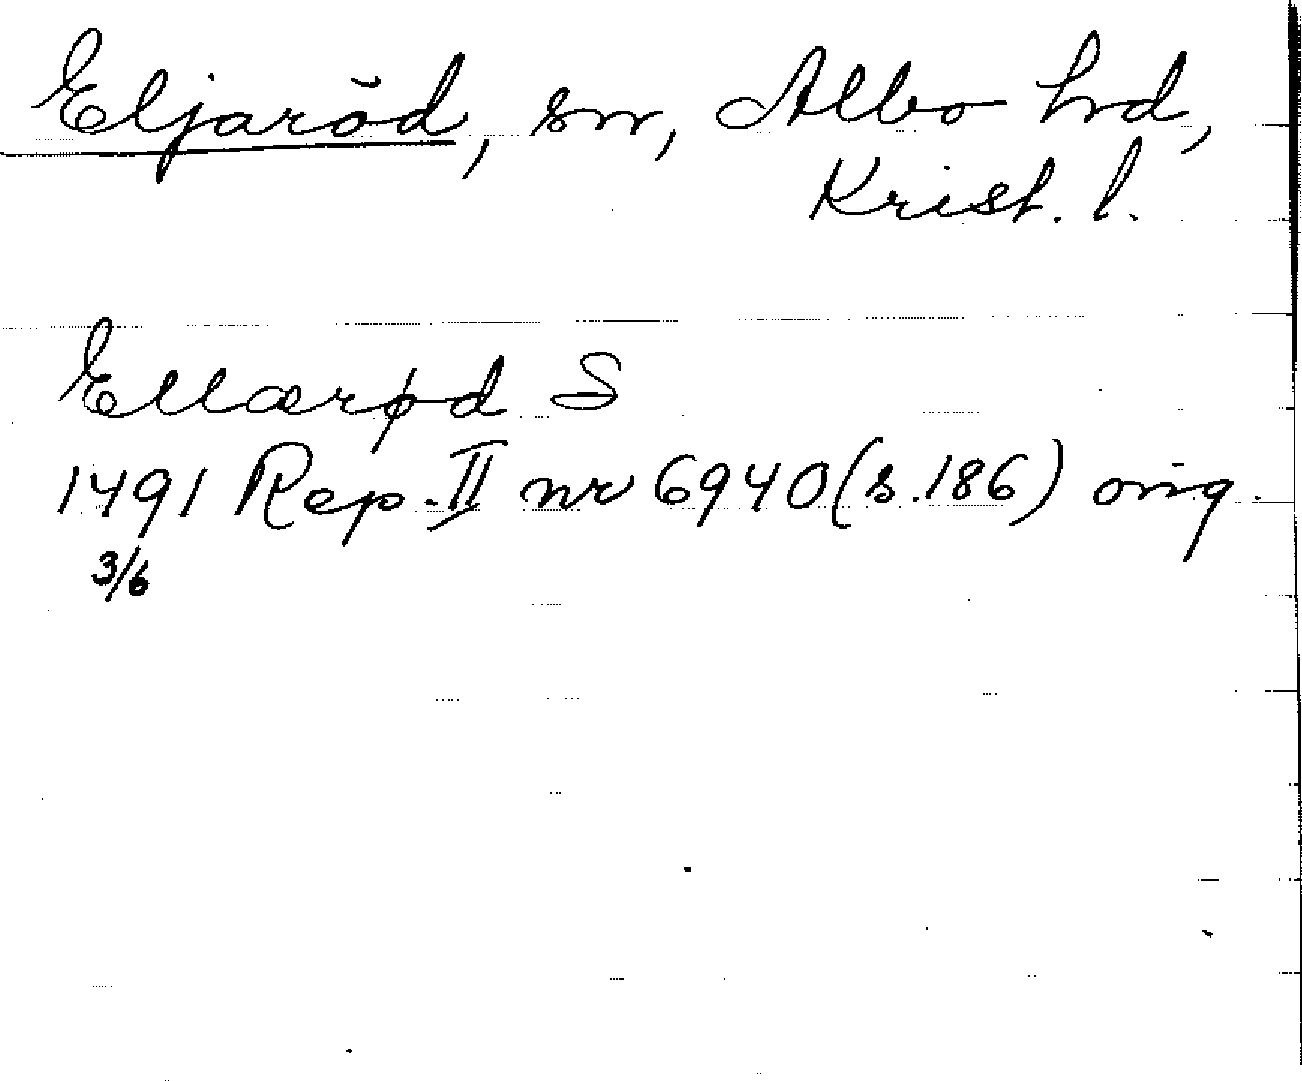 Eljaröd, sn, Albo hrd,
Krist. l.
Ellærød S
1491 Rep. II nr 6940 (s. 186) orig.
3/6